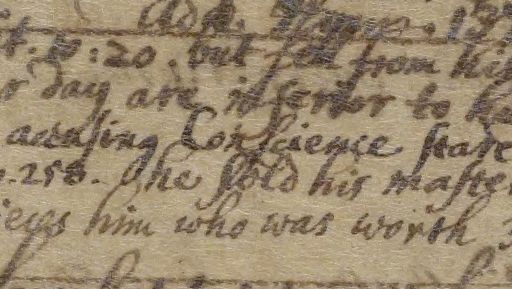 it. 10:20. but fell from his
day are inferior to
accusing Conscience stare
p. 258. he sold his master
him who was worth 3